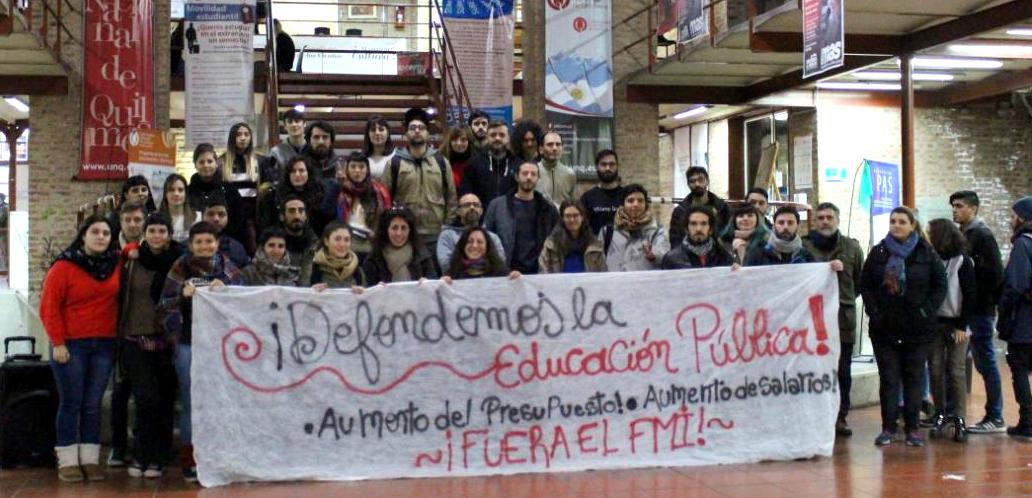 Na
nal
de
Quil
mes
www.unq.e
Movilidad
estudiantil
¿Querés estudiar
en el extranjero
un semestre?
Cultura
mas
PAS
¡Defendemos la
Educación Pública!
• Aumento del Presupuesto! • Aumento de salarios!
~¡FUERA EL FMI!~